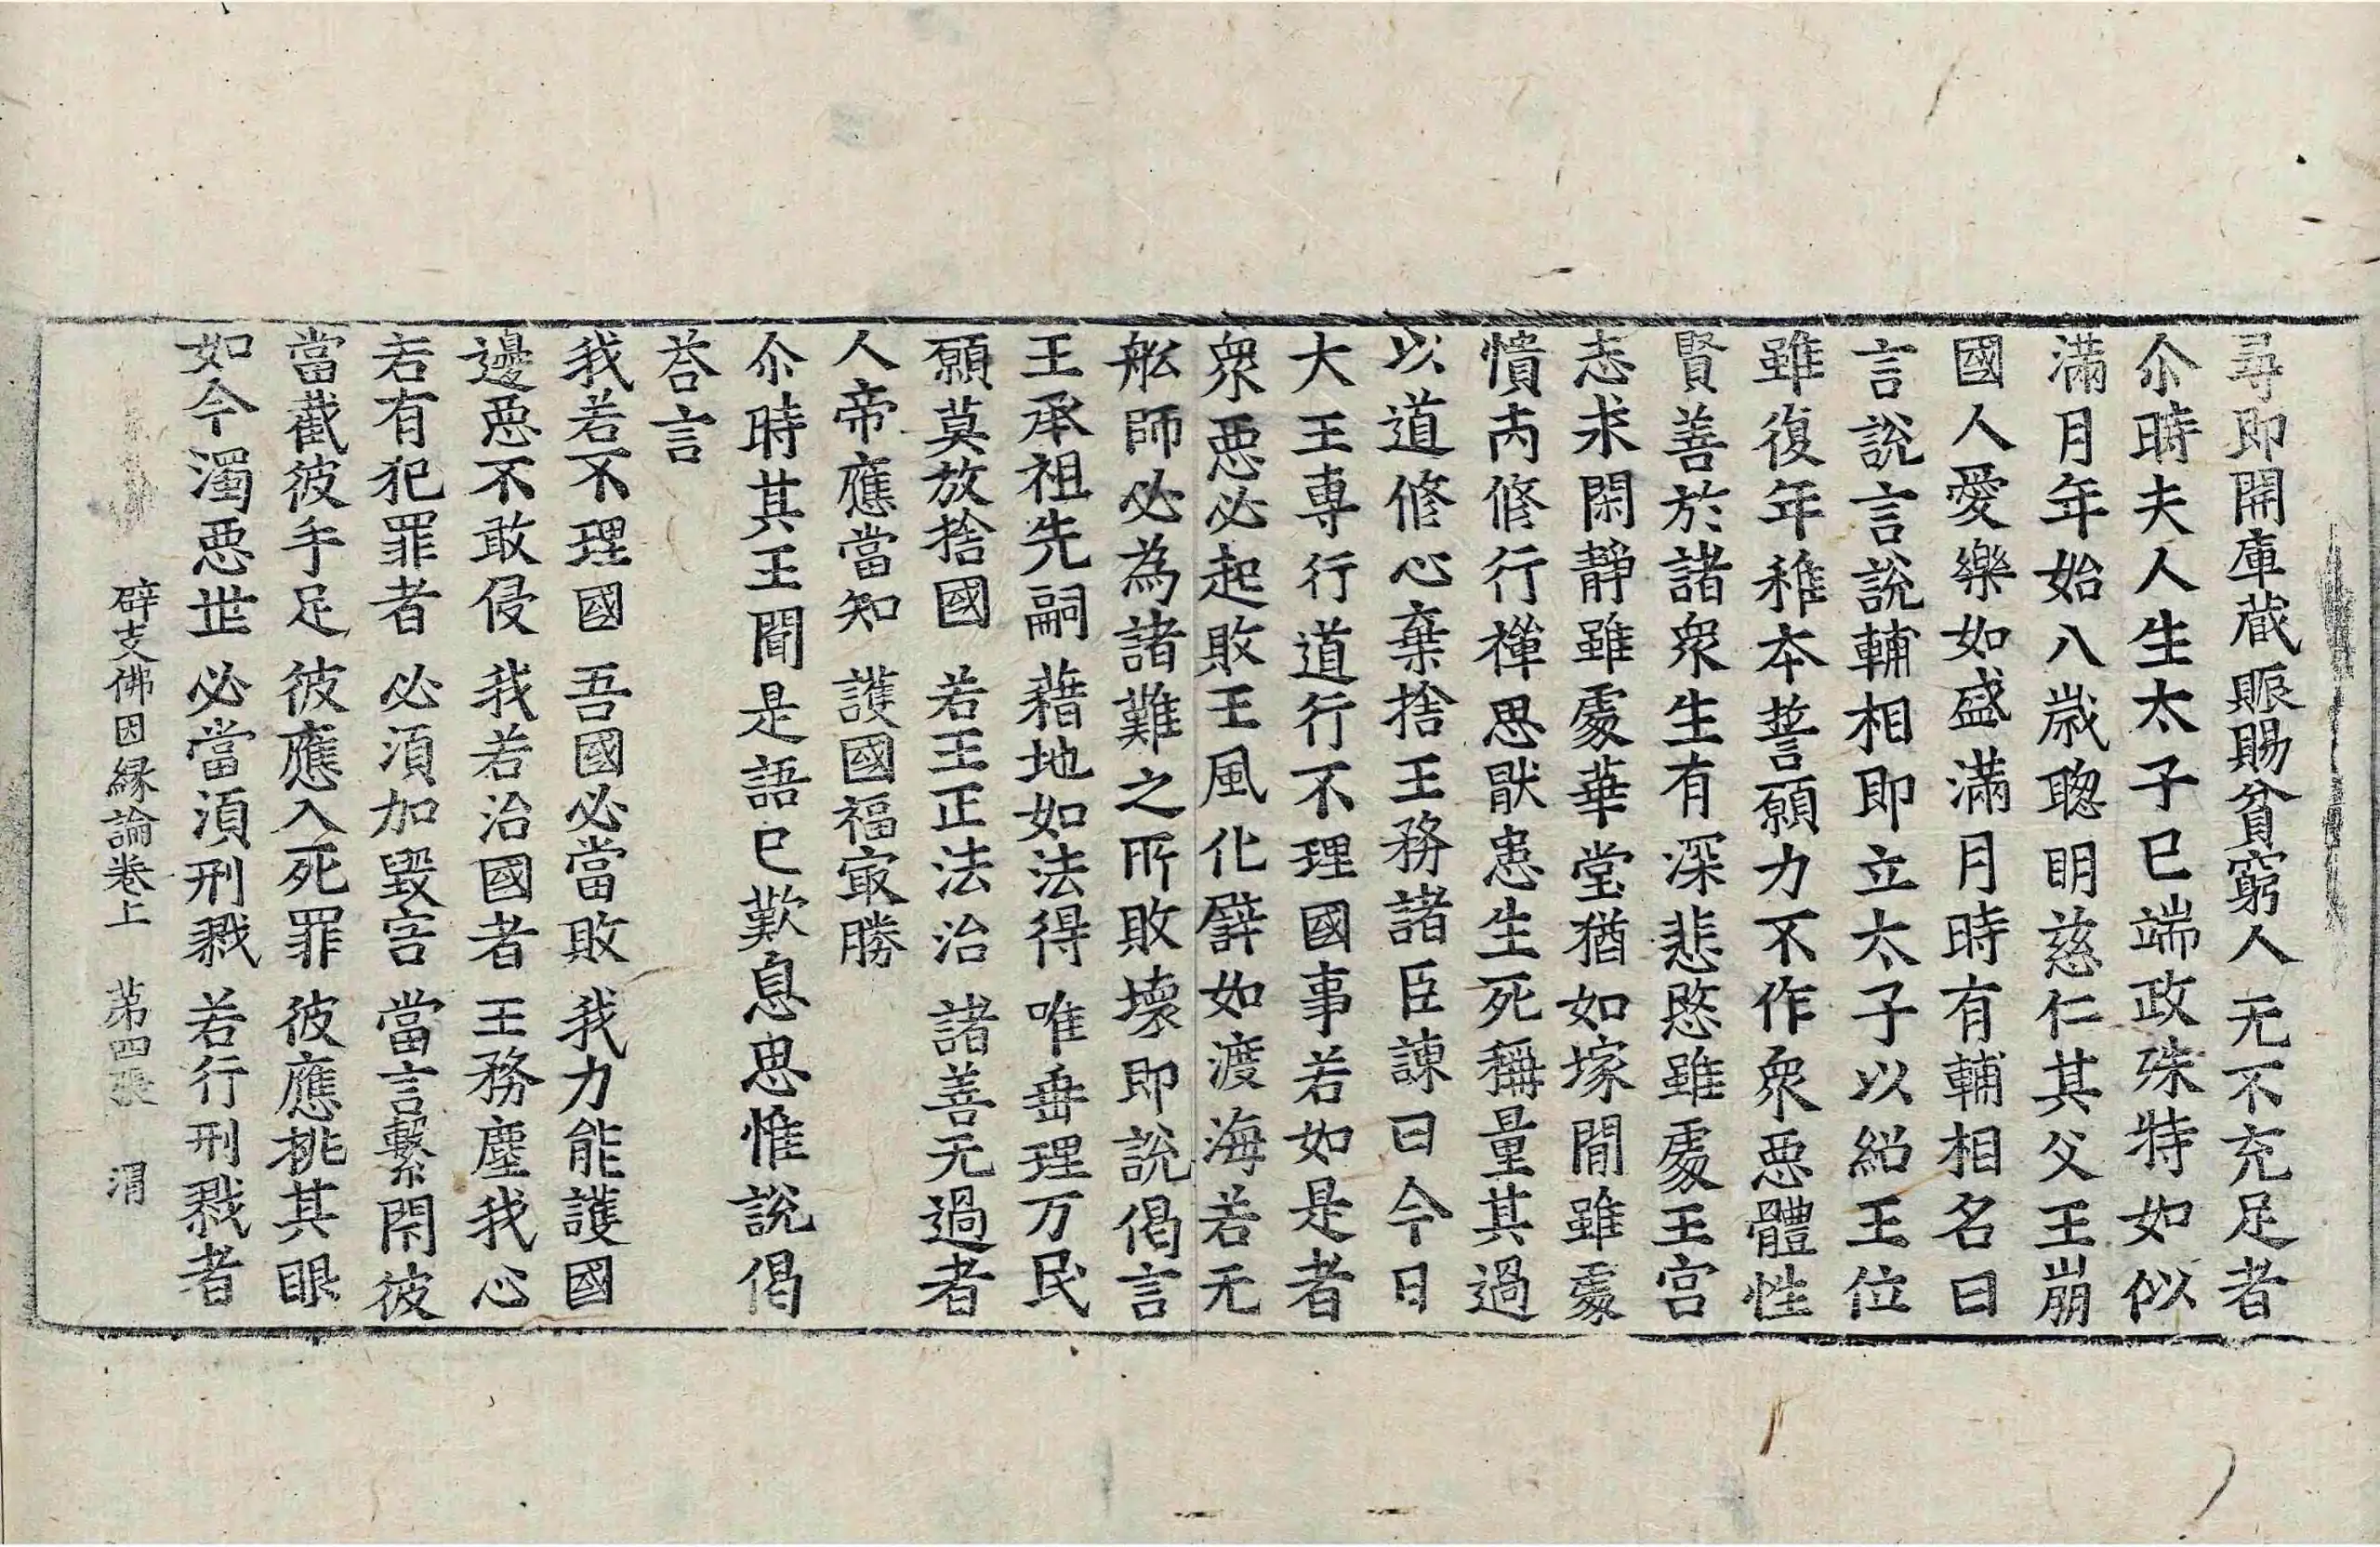 尋即開庫蔵賑賜貧窮人无不充足者
尒時夫人生太子已端政殊特如似
滿月年始八歲聦明慈仁其父王崩
國人愛樂如盛滿月時有輔相名曰
言說言說輔相即立太子以紹王位
雖復年稚本誓願力不作衆惡體性
賢善於諸衆生有深悲愍雖處王宫
志求閑靜雖處華堂猶如塚間雖處
憒丙修行禪思猒患生死稱量其過
以道修心棄捨王務諸臣諫曰今日
大王専行道行不理國事若如是者
衆惡必起敗王風化譬如渡海若无
舩師必為諸難之所敗壞即說偈言
王承祖先嗣　藉地如法得　唯垂理万民
願莫放捨國　若王正法治　諸善无過者
人帝應當知　護國福寂勝
尒時其王聞是語已歎息思惟說偈
荅言
我若不理國　吾國必當敗　我力能護國
邊惡不敢侵　我若治國者　王務塵我心
若有犯罪者　必湏加毀害　當言繫閇彼
當截彼手足　彼應入死罪　彼應挑其眼
如今濁惡世　必當湏刑戮　若行刑戮者
辟支佛因縁論卷上　苐四張　渭